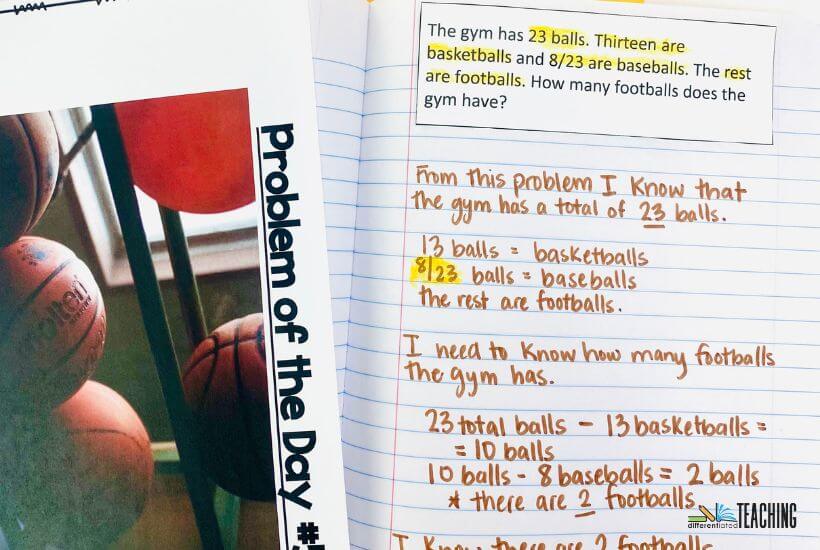 The gym has 23 balls. Thirteen are
basketballs and 8/23 are baseballs. The rest
are footballs. How many footballs does the
gym have?
From this problem I know that
the gym has a total of 23 balls.
13 balls = basketballs
8/23 balls = baseballs
the rest are footballs.
I need to know how many footballs
the gym has.
23 total balls - 13 basketballs =
= 10 balls
10 balls - 8 baseballs = 2 balls
* there are 2 footballs
I know there are 2 footballs
Problem of the Day #
molten
differentiated TEACHING